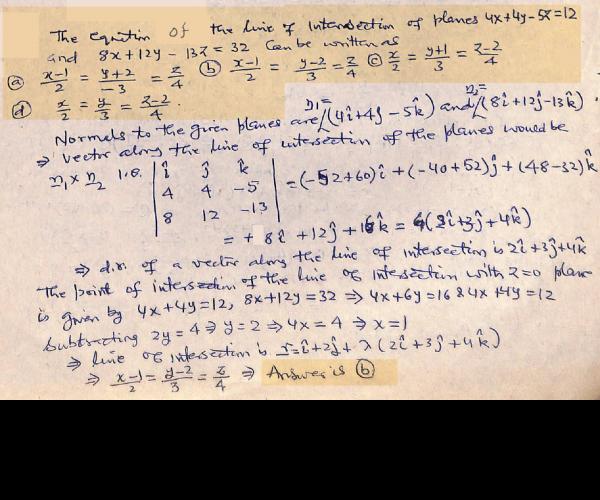 The equation of the line of intersection of planes 4x+4y-5z=12
and 8x+12y-13z = 32 can be written as
(a) x-1/2 = y+2/-3 = z/4 (b) x-1/2 = y-2/3 = z/4 (c) x/2 = y+1/3 = z-2/4
(d) x/2 = y/3 = z-2/4 .
Normals to the given planes are n1= (4î+4ĵ-5k̂) and n2= (8î+12ĵ-13k̂)
⇒ vector along the line of intersection of the planes would be
n1 x n2 i.e. | î ĵ k̂ | = (-52+60)î + (-40+52)ĵ + (48-32)k̂
4 4 -5
8 12 -13
= + 8î +12ĵ +16k̂ = 4(2î+3ĵ+4k̂)
⇒ d.r. of a vector along the line of intersection is 2î+3ĵ+4k̂
The point of intersection of the line of intersection with z=0 plane
is given by 4x+4y=12, 8x+12y=32 ⇒ 4x+6y=16 & 4x+4y=12
Subtracting 2y=4 ⇒ y=2 ⇒ 4x=4 ⇒ x=1
⇒ line of intersection is r=î+2ĵ+λ(2î+3ĵ+4k̂)
⇒ x-1/2 = y-2/3 = z/4 ⇒ Answer is (b)